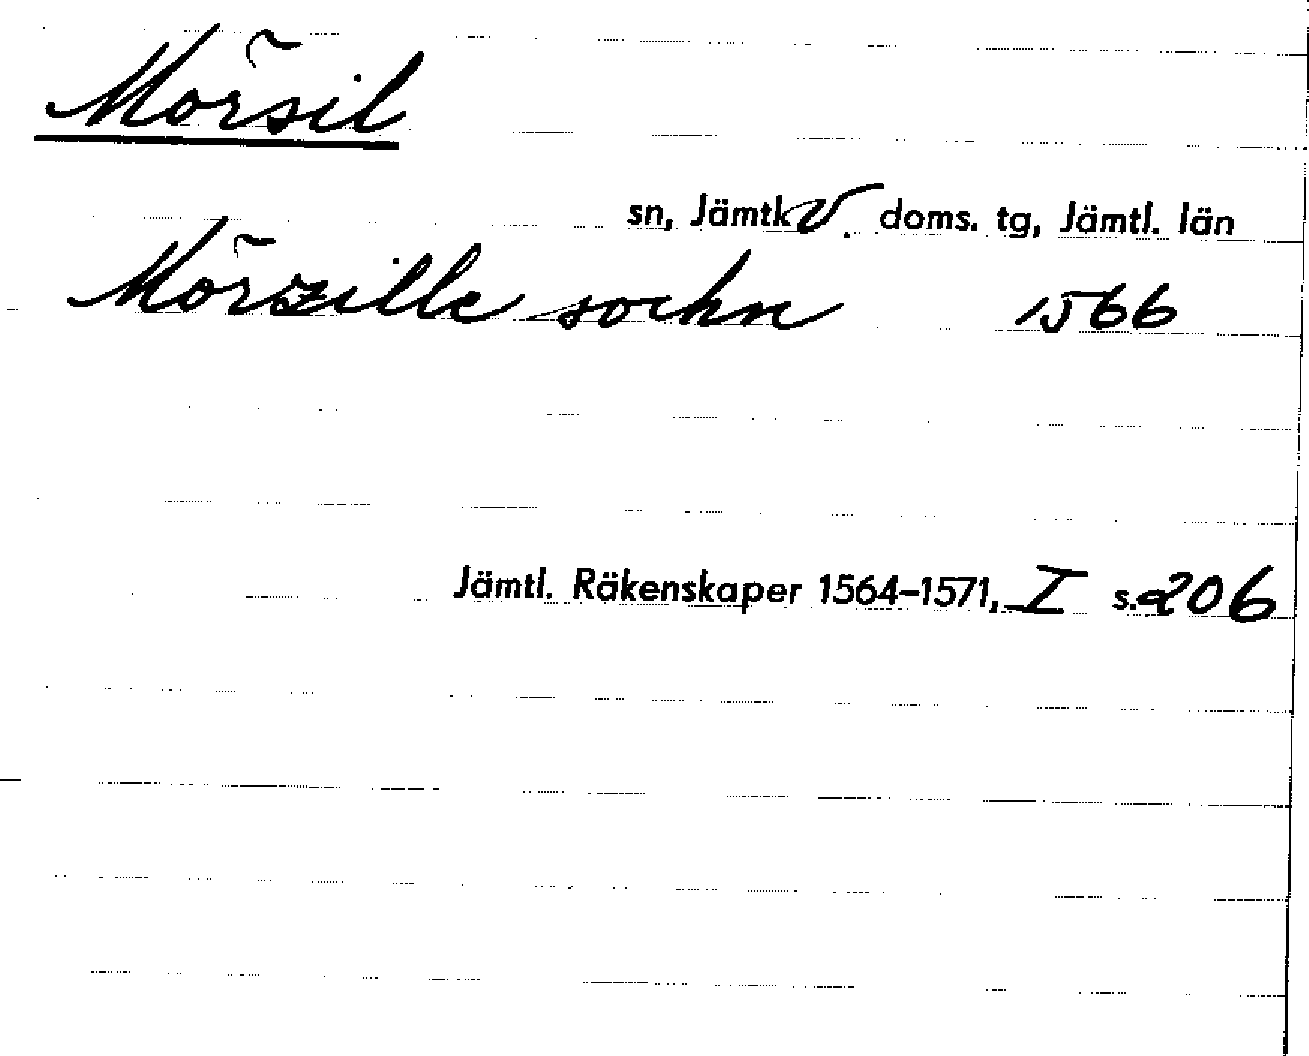 Mörsil
sn, Jämtk V. doms. tg, Jämtl. län
Mörzille sockne 1566
Jämtl. Räkenskaper 1564-1571, I s. 206